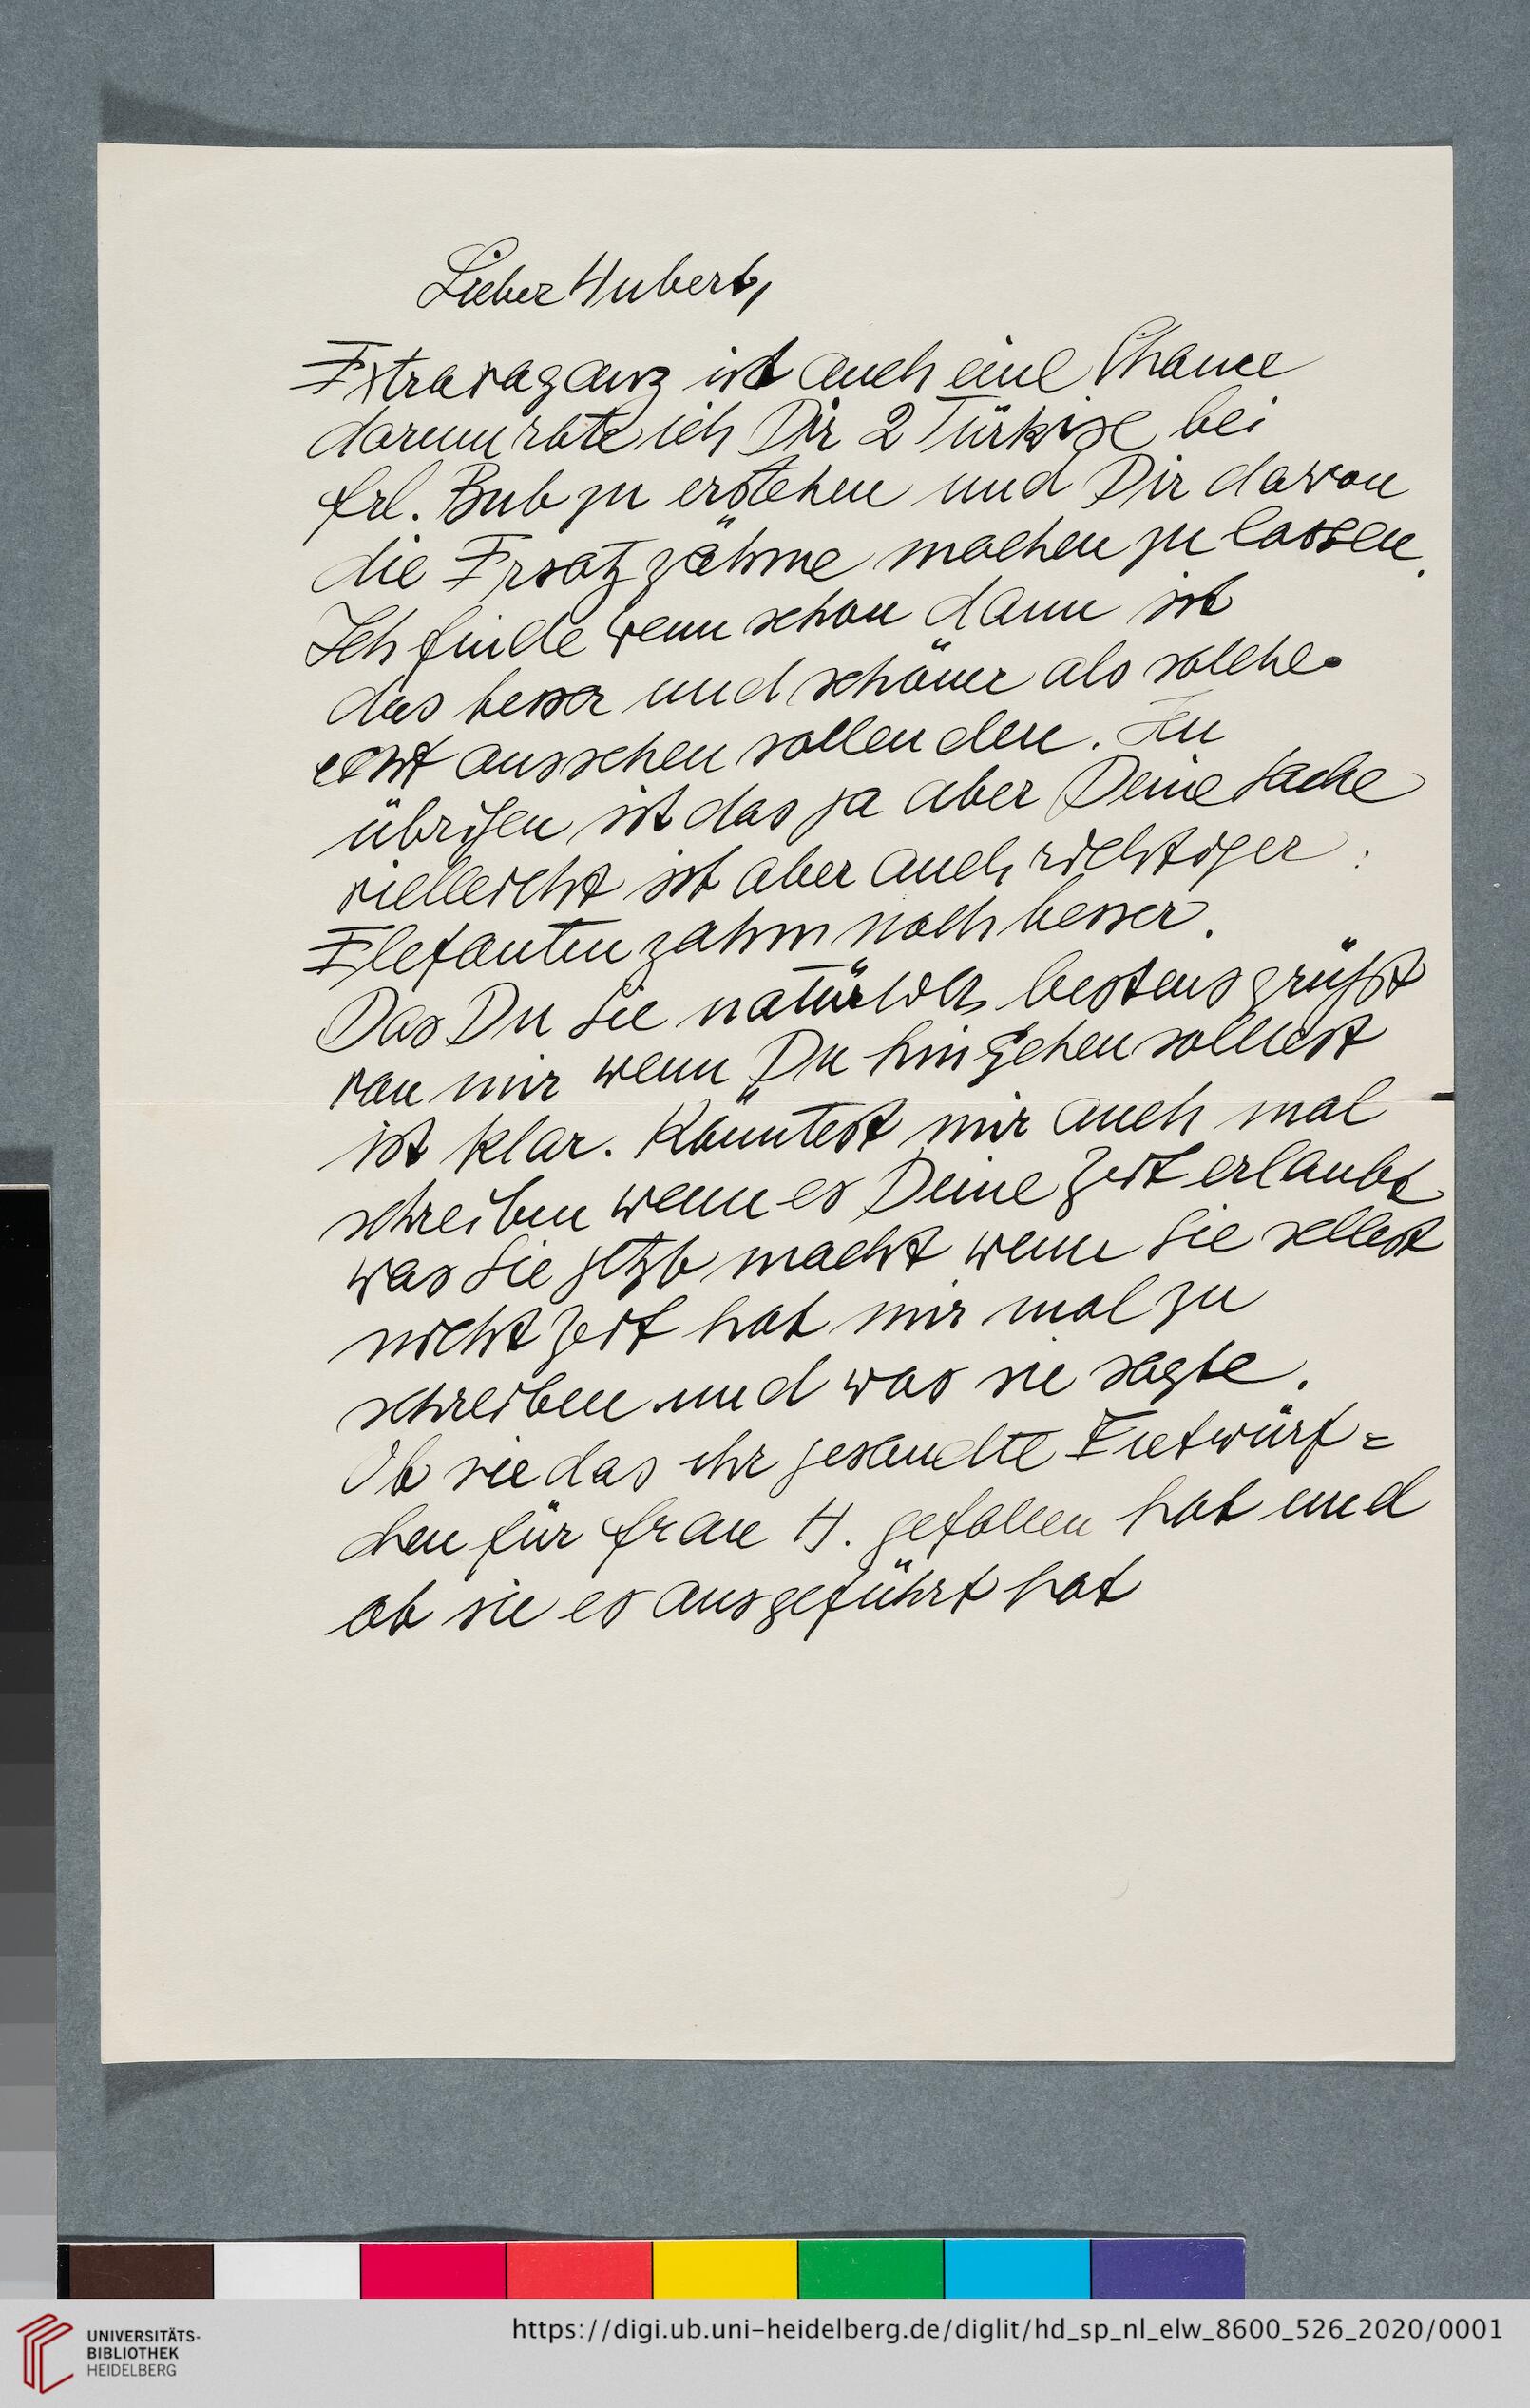 Lieber Hubert,
Extravaganz ist auch eine Chance
darum rate ich Dir 2 Türkise bei
Frl. Bub zu erstehen und Dir davon
die Ersatzzähne machen zu lassen.
Ich finde wenn schon dann ist
das besser und schöner als solche
echt aussehen sollenden. Im
übrigen ist das ja aber Deine Sache
vielleicht ist aber auch richtiger:
Elefantenzahm noch besser.
Das Du Sie natürlich bestens grüßt
von mir wenn Du hingehen solltest
ist klar. Könntest mir auch mal
schreiben wenn es Deine Zeit erlaubt
was Sie jetzt macht wenn Sie selbst
nicht Zeit hat mir mal zu
schreiben und was sie sagte.
Ob sie das ihr gesandte Entwürf=
chen für Frau H. gefallen hat und
ob sie es ausgeführt hat
UNIVERSITÄTS-
BIBLIOTHEK
HEIDELBERG
https://digi.ub.uni-heidelberg.de/diglit/hd_sp_nl_elw_8600_526_2020/0001